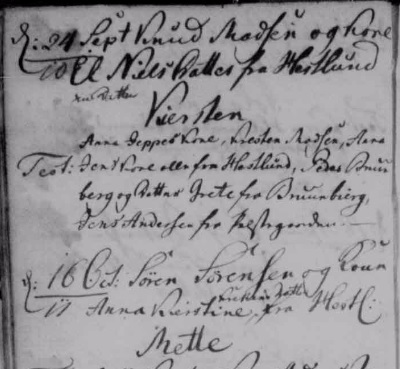 d: 24 Sept Knud Madsen og Kone
10 El Niels Datter fra Hestlund
Kiersten
Anna Jeppes Kone, Kresten Madsen, Anna
Test: Jens Kone alle fra Hestlund, Peder Bruun
berg og Datter Grete fra Bruunbierg,
Jens Andersen fra
d: 16 Oct: Søren Sørensen og Koun
11 Anna Kierstine, fra Hestl:
Mette